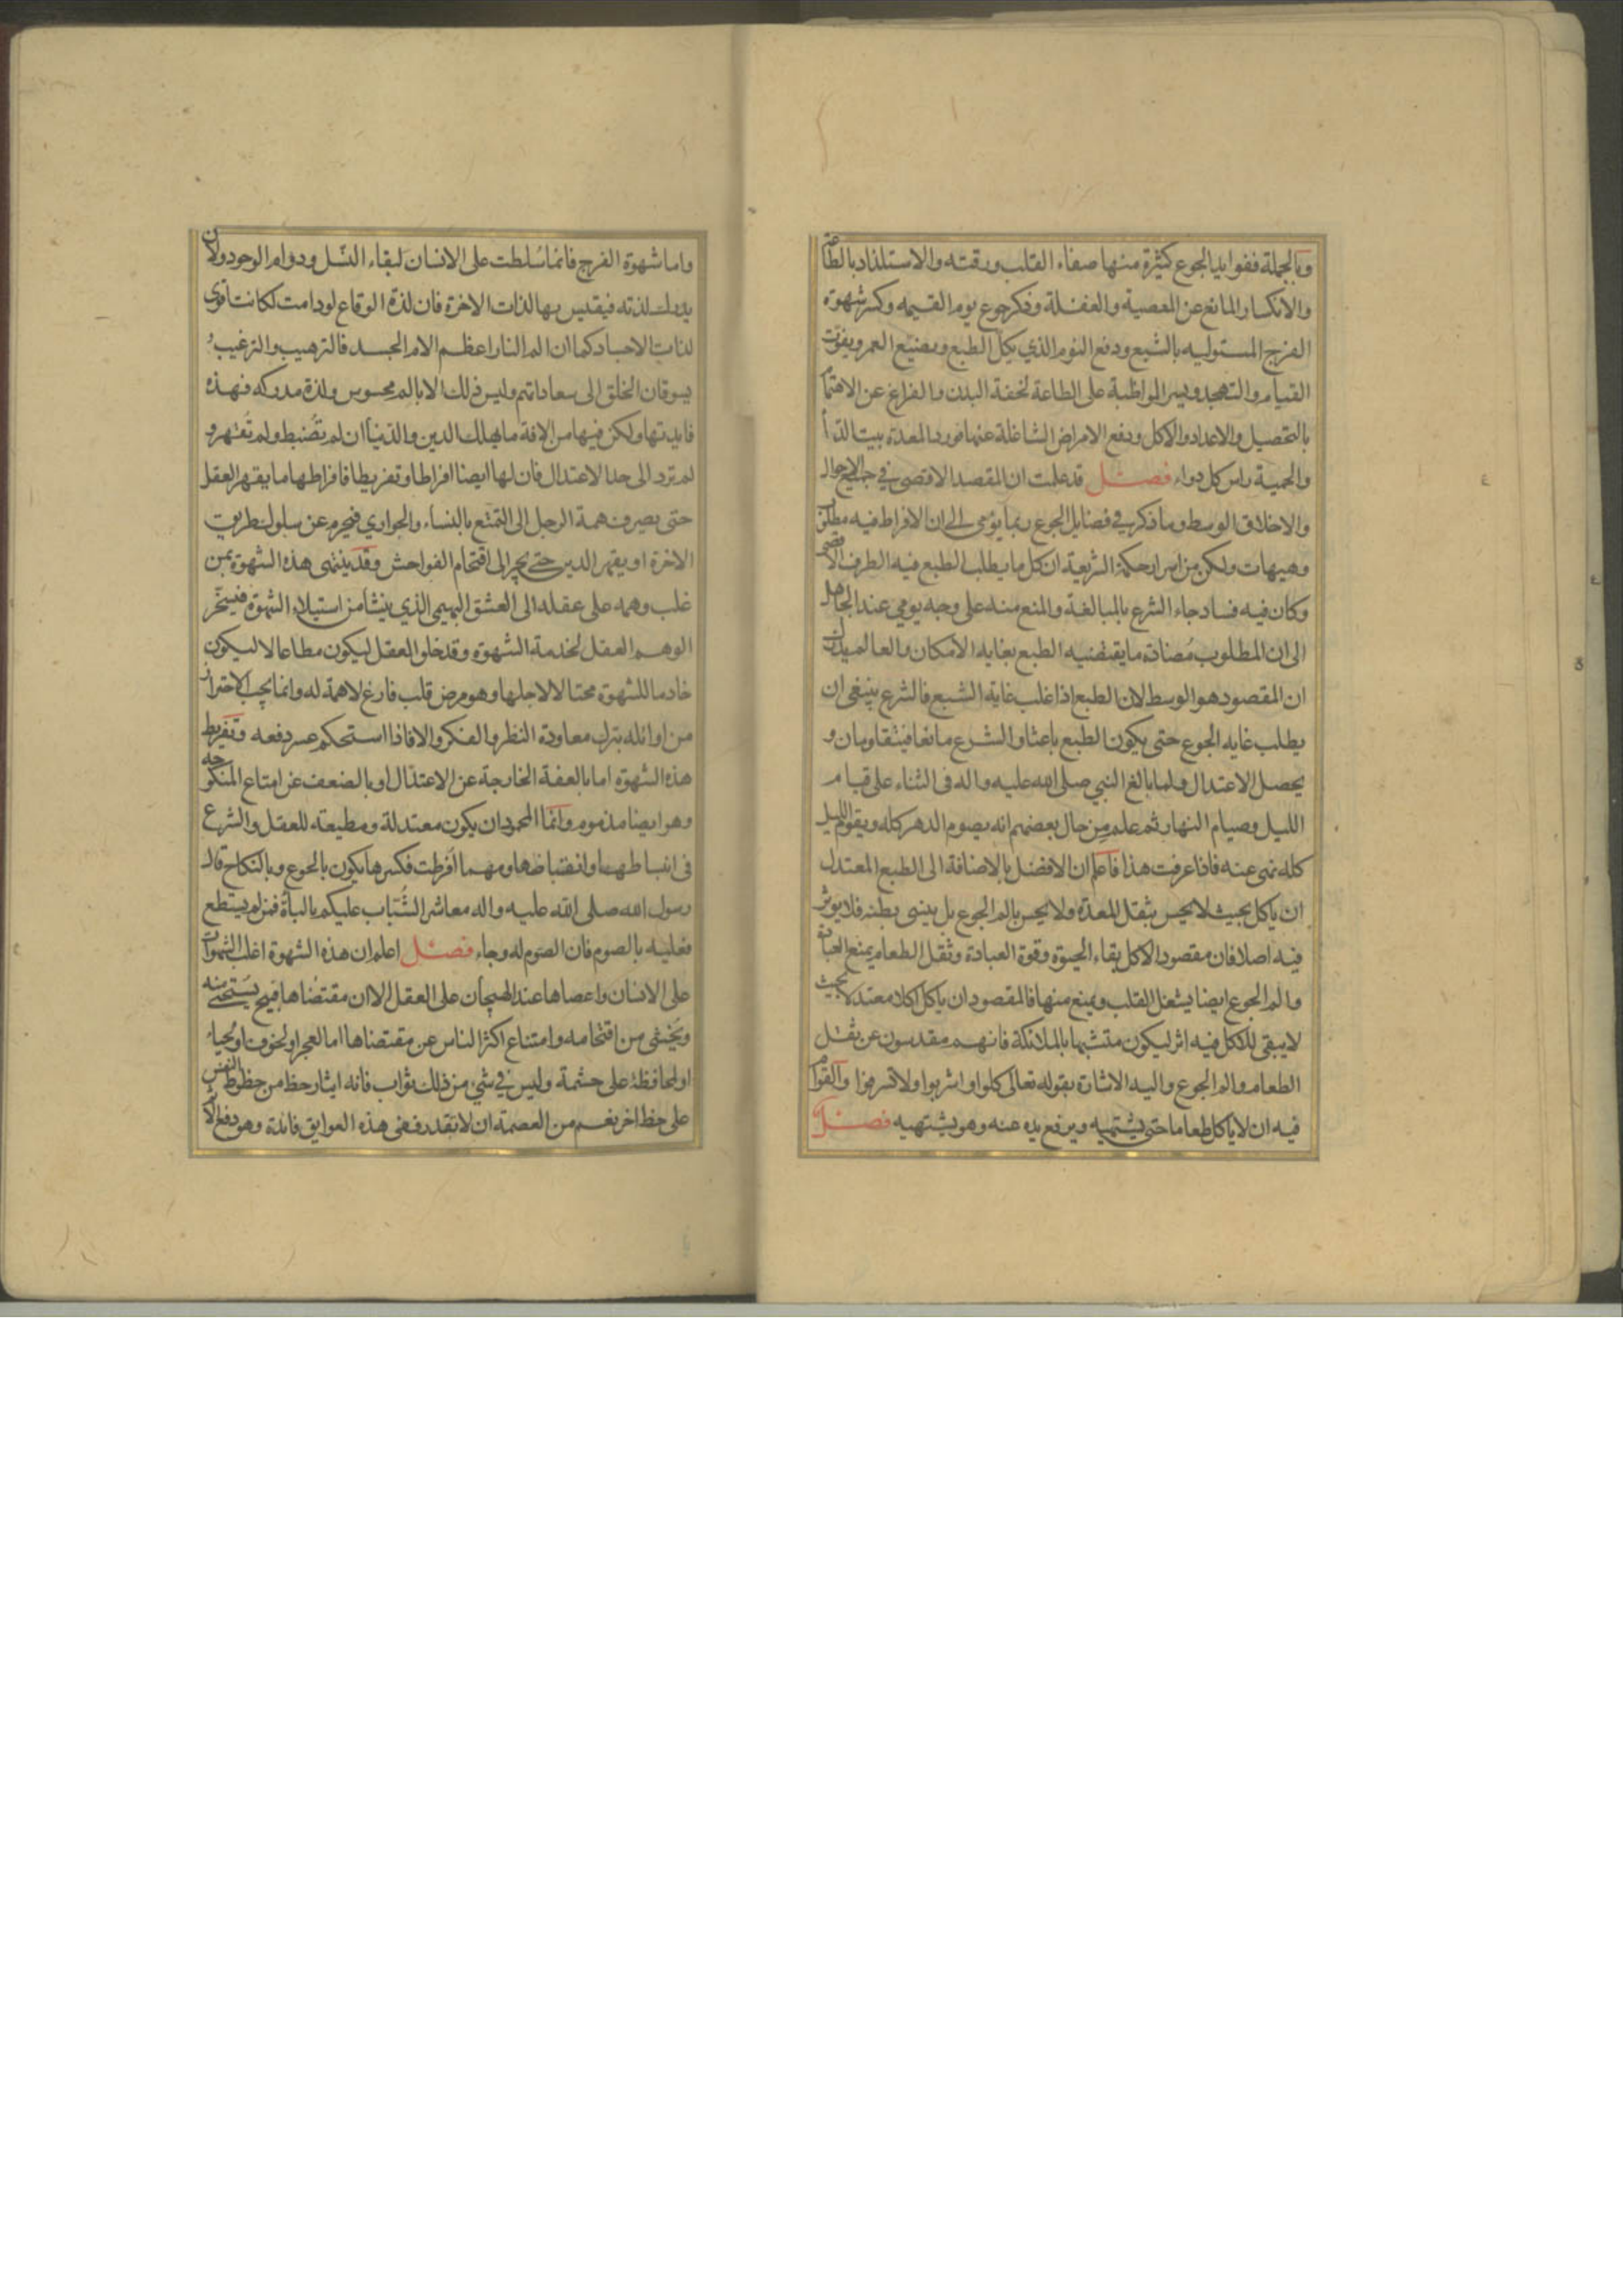 وبالجملة ففوايد الجوع كثيرة منها صفاء القلب ورقته والاستلذاد بالطاعة
والانكسار المانع عن المعصية والغفلة وذكر جوع يوم القيمه وكسر شهوة
الفرج المستوليه بالشبع ودفع النوم الذي يكل الطبع ويضيع العمر ويفوت
القيام والتهجد ويسر المواظبة على الطاعة لخفة البدن والفراغ عن الاهتمام
بالتحصيل والاعداد والاكل ودفع الامراض الشاغلة عنها فورد المعدة بيت الداء
والحمية راس كل دواء فصل قد علمت ان المقصد الاقصى في جميع الاحوال
والاخلاق الوسط وما ذكر في فضايل الجوع ربما يؤمى الى ان الافراط فيه مطلوب
وهيهات ولكن من اسرار حكمة الشريعة ان كل ما يطلب الطبع فيه الطرف الاقصى
وكان فيه فساد جاء الشرع بالمبالغة والمنع منه على وجه يومي عند الجاهل
الى ان المطلوب مضادة ما يقتضيه الطبع بغايه الامكان والعالم يدرك
ان المقصود هو الوسط لان الطبع اذا غلب غاية الشبع فالشرع ينبغي ان
يطلب غايه الجوع حتى يكون الطبع باعثا والشرع مانعا فيتقاومان و
يحصل الاعتدال ولما بالغ النبي صلى الله عليه واله في الثناء على قيام
الليل وصيام النهار ثم علم من حال بعضهم انه يصوم الدهر كله ويقوم الليل
كله نهى عنه فاذا عرفت هذا فاعلم ان الافضل بالاضافة الى الطبع المعتدل
ان ياكل بحيث لا يحس بثقل المعدة ولا يحس بالم الجوع بل ينسى بطنه فلا يوثر
فيه اصلا فان مقصود الاكل بقاء الحيوة وقوة العبادة وثقل الطعام يمنع العبادة
والم الجوع ايضا يشغل القلب ويمنع منها فالمقصود ان ياكل اكلا معتدلا بحيث
لا يبقى للاكل فيه اثر ليكون متشبها بالملائكة فانهم مقدسون عن ثقل
الطعام والم الجوع واليه الاشارة بقوله تعالى كلوا واشربوا ولا تسرفوا والقوام
فيه ان لا ياكل طعاما حتى يشتهيه ويرفع يده عنه وهو يشتهيه فصل
واما شهوة الفرج فانما سُلطت على الانسان لبقاء النسل ودوام الوجود ولان
يدرك لذته فيقيس بها لذات الاخرة فان لذة الوقاع لو دامت لكانت اقوى
لذات الاجساد كما ان الم النار اعظم الام الجسد فالترهيب والترغيب
يسوقان الخلق الى سعاداتهم وليس ذلك الا بالم محسوس ولذة مدركه فهذه
فايدتها ولكن فيها من الافة ما يهلك الدين والدنيا ان لم تُضبط ولم تُقهر و
لم ترد الى حد الاعتدال فان لها ايضا افراطا وتفريطا فافراطها ما يقهر العقل
حتى يصرف همة الرجل الى التمتع بالنساء والجواري فيحرم عن سلوك طريق
الاخرة او يقهر الدين حتى يجر الى اقتحام الفواحش وقد ينتهى هذه الشهوة بمن
غلب وهمه على عقله الى العشق البهيمى الذي ينشا من استيلاء الشهوة فيسخّر
الوهم العقل لخدمة الشهوة وقد خلق العقل ليكون مطاعا لا ليكون
خادما للشهوة محتالا لاجلها وهو مرض قلب فارغ لا همة له وانما يجب الاحتراز
من اوائله بترك معاودة النظر والفكر والا فاذا استحكم عسر دفعه وتفريط
هذه الشهوة اما بالعفة الخارجة عن الاعتدال او بالضعف عن امتاع المنكوحه
وهو ايضا مذموم وانما المحمود ان يكون معتدلة ومطيعة للعقل والشرع
في انبساطها وانقباظها ومهما افرطت فكسرها يكون بالجوع وبالنكاح قال
رسول الله صلى الله عليه واله معاشر الشُباب عليكم بالباة فمن لم يستطع
فعليه بالصوم فان الصوم له وجاء فصل اعلم ان هذه الشهوة اغلب الشهوات
على الانسان واعصاها عند الهيجان على العقل الا ان مقتضاها قبيح يستحيى منه
ويخشى من اقتحامه وامتناع اكثر الناس عن مقتضاها اما لعجز او لخوف او لحياء
او لمحافظة على حشمة وليس في شئ من ذلك ثواب فانه ايثار حظ من حظوظ النفس
على حظ اخر نعم من العصمة ان لا تقدر ففى هذه العوايق فائدة وهو دفع الاثم